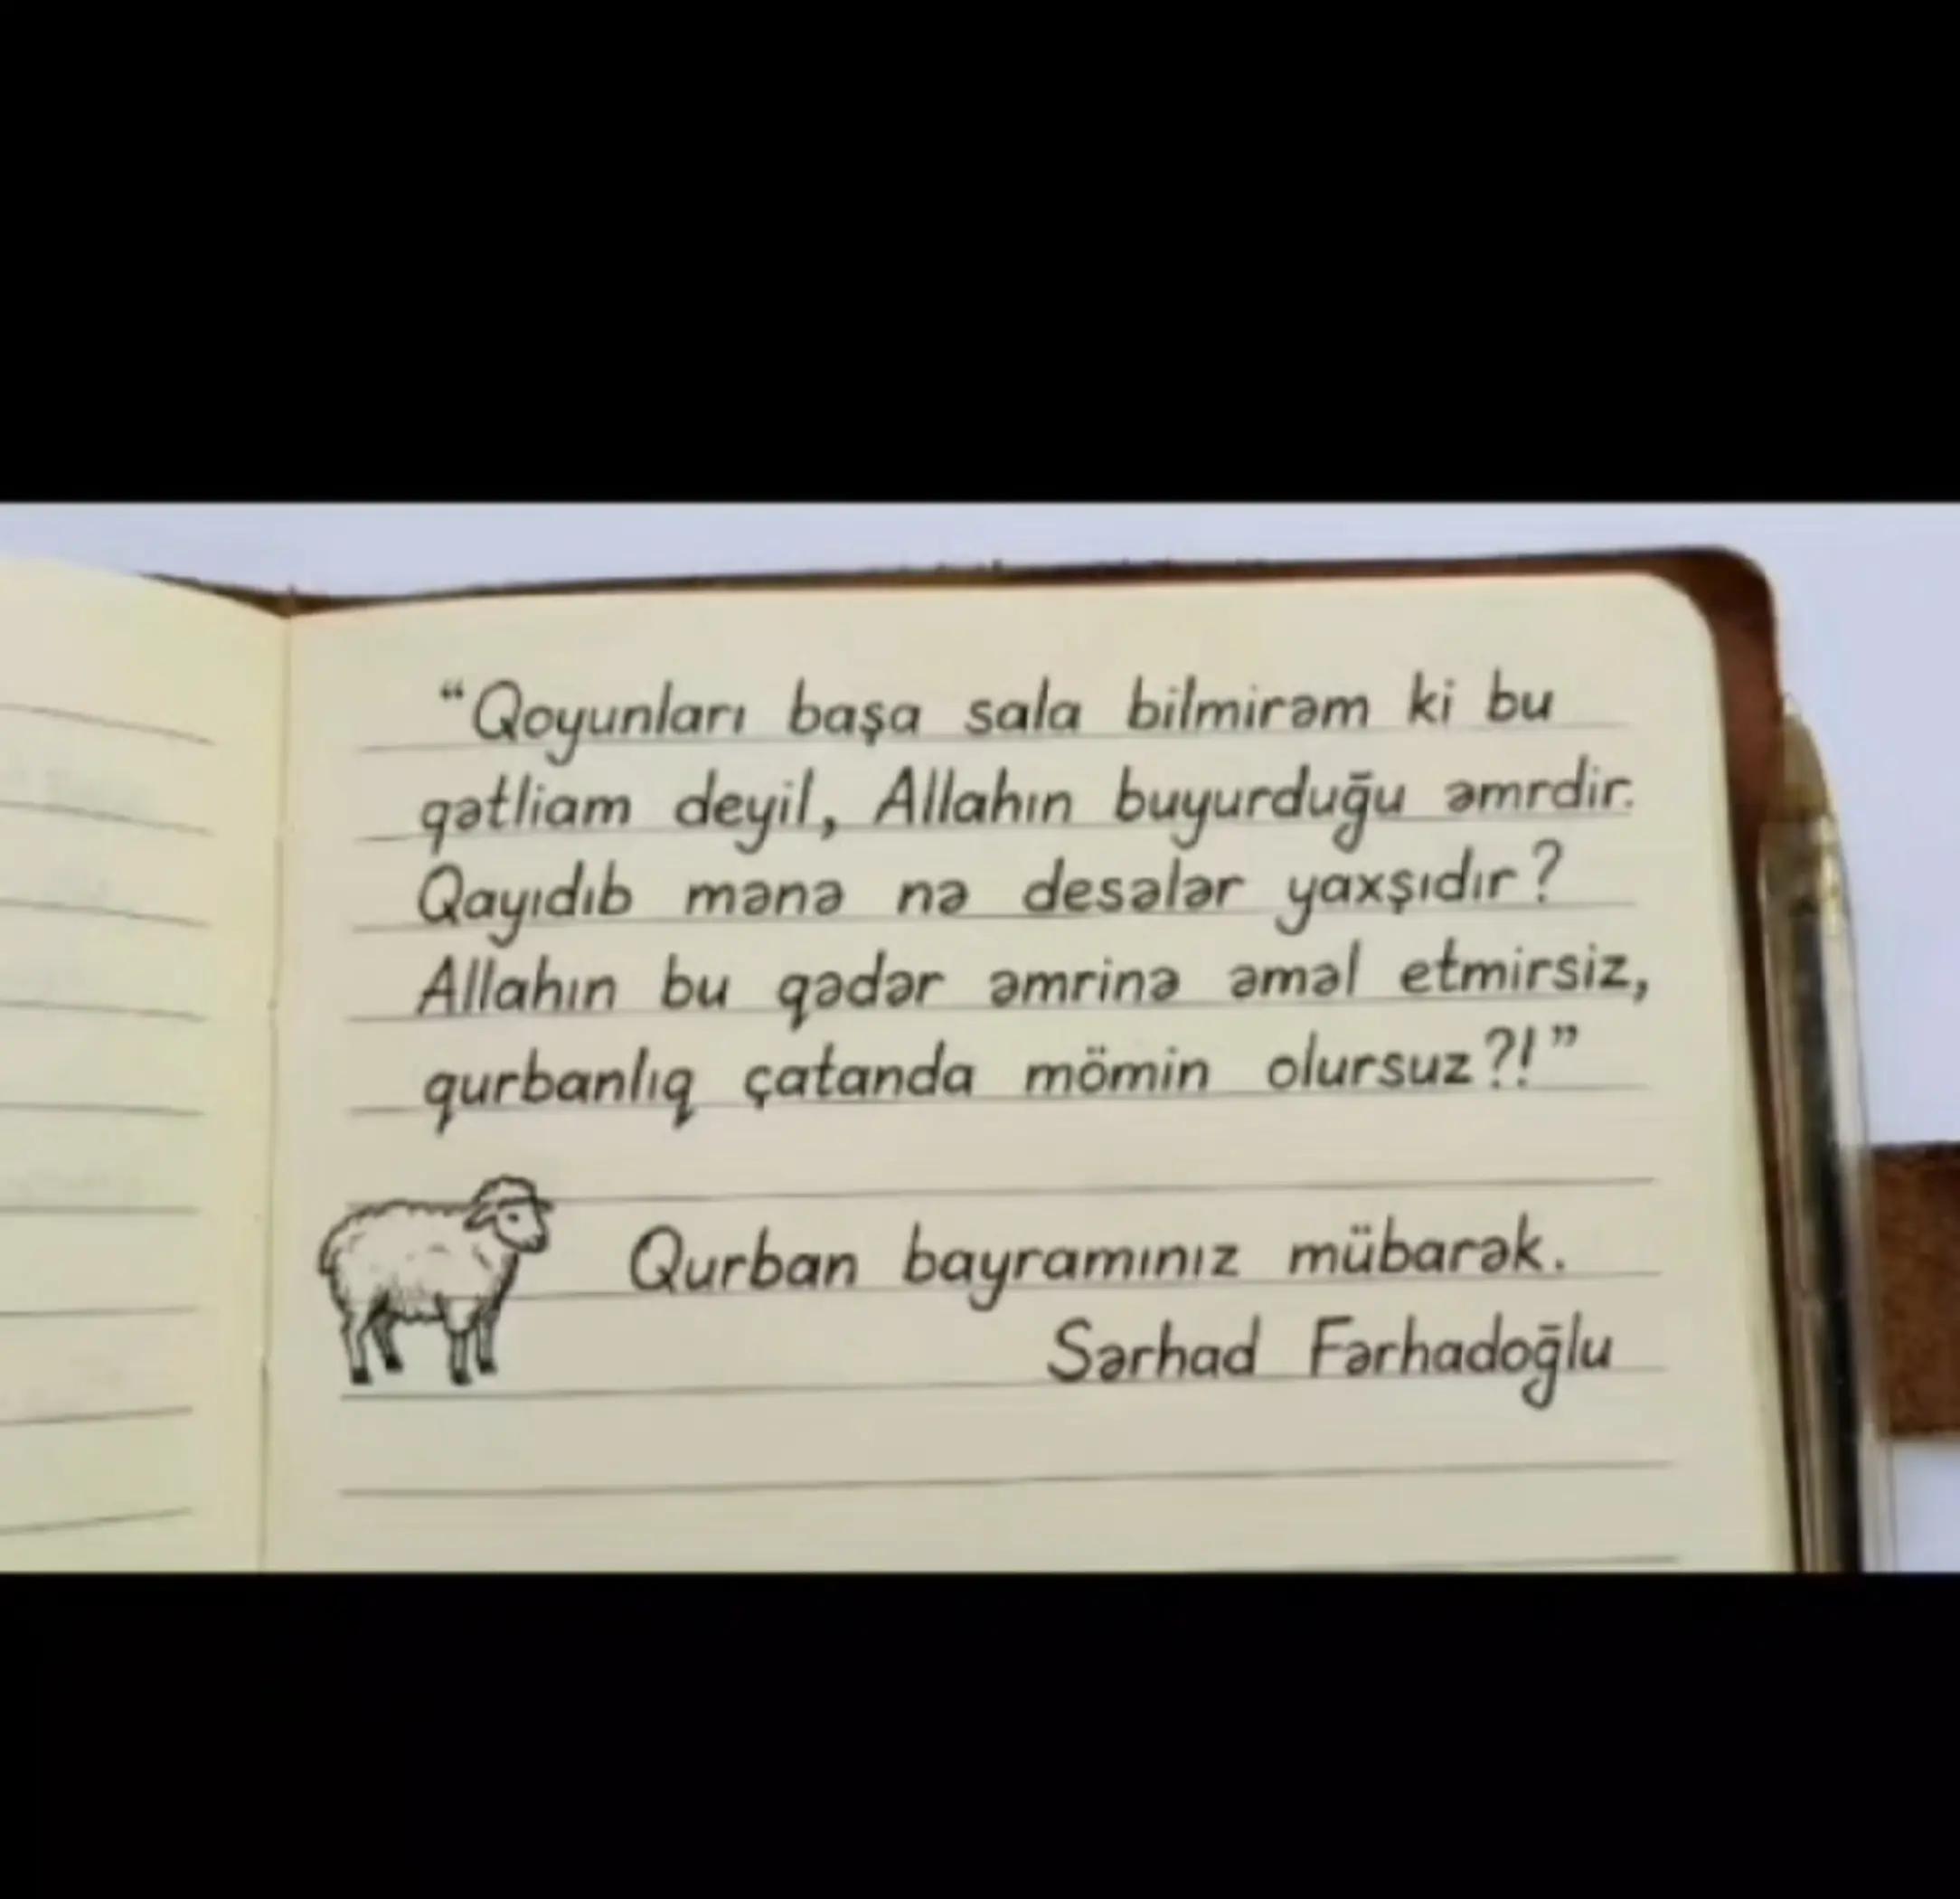 “Qoyunları başa sala bilmirəm ki bu
qətliam deyil, Allahın buyurduğu əmrdir.
Qayıdıb mənə nə desələr yaxşıdır?
Allahın bu qədər əmrinə əməl etmirsiz,
qurbanlıq çatanda mömin olursuz?!”
Qurban bayramınız mübarək.
Sərhad Fərhadoğlu